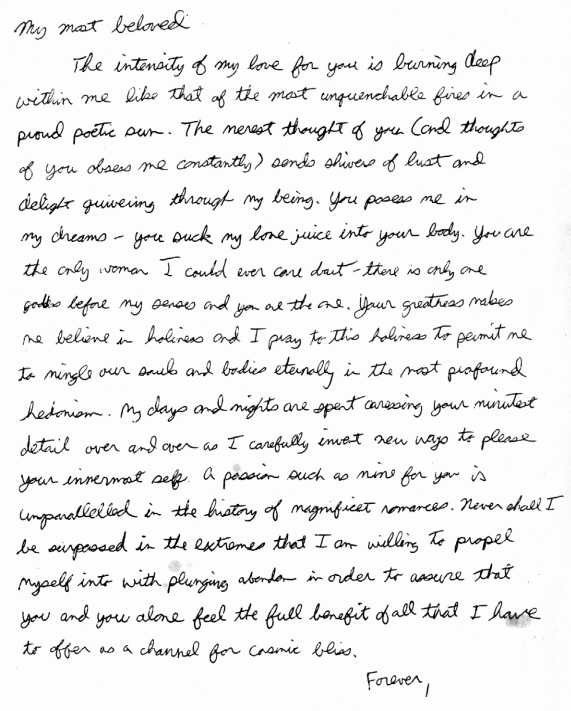 My most beloved
The intensity of my love for you is burning deep
within me like that of the most unquenchable fires in a
proud poetic sun. The merest thought of you (and thoughts
of you obsess me constantly) sends shivers of lust and
delight quivering through my being. You posess me in
my dreams - you suck my love juice into your body. You are
the only woman I could ever care abut - there is only one
goddess before my senses and you are the one. Your greatness makes
me believe in holiness and I pray to this holiness to permit me
to mingle our souls and bodies eternally in the most profound
hedonism. My days and nights are spent caressing your minutest
detail over and over as I carefully invent new ways to please
your innermost self. A passion such as mine for you is
unparallelled in the history of magnificet romances. Never shall I
be surpassed in the extremes that I am willing to propel
myself into with plunging abandon in order to assure that
you and you alone feel the full benefit of all that I have
to offer as a channel for cosmic bliss.
Forever,